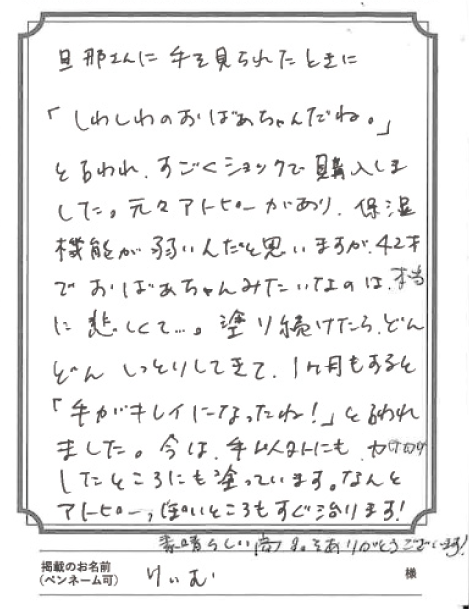 旦那さんに手を見られたときに
「しわしわのおばあちゃんだね。」
と言われ、すごくショックで購入しま
した。元々アトピーがあり、保湿
機能が弱いんだと思いますが、42才
でおばあちゃんみたいなのは、本当
に悲しくて…。塗り続けたら、どん
どんしっとりしてきて、1ヶ月もすると
「手がキレイになったね!」と言われ
ました。今は、手以外にも、カサカサ
したところにも塗っています。なんと
アトピーっぽいところもすぐ治ります!
素晴らしい商品をありがとうございます!
掲載のお名前
(ペンネーム可) りぃむ 様